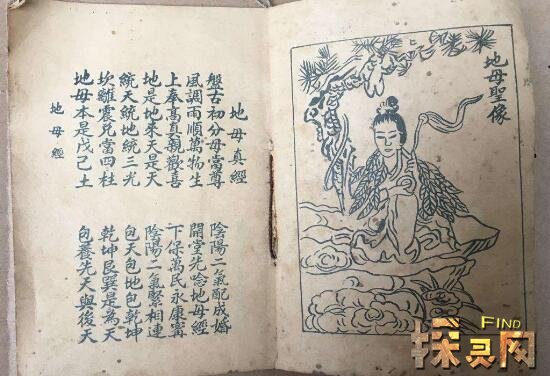 地母聖像
地母真經
盤古初分母當尊 陰陽二氣配成婚
風調雨順萬物生 開堂先唸地母經
上奉高真親歡喜 下保萬民永康寧
地是地來天是天 陰陽二氣緊相連
統天統地統三光 包天包地包乾坤
坎離震兌當四柱 乾坤艮巽是為天
地母本是戊己土 包養先天與後天
地母經
FIND
探灵网